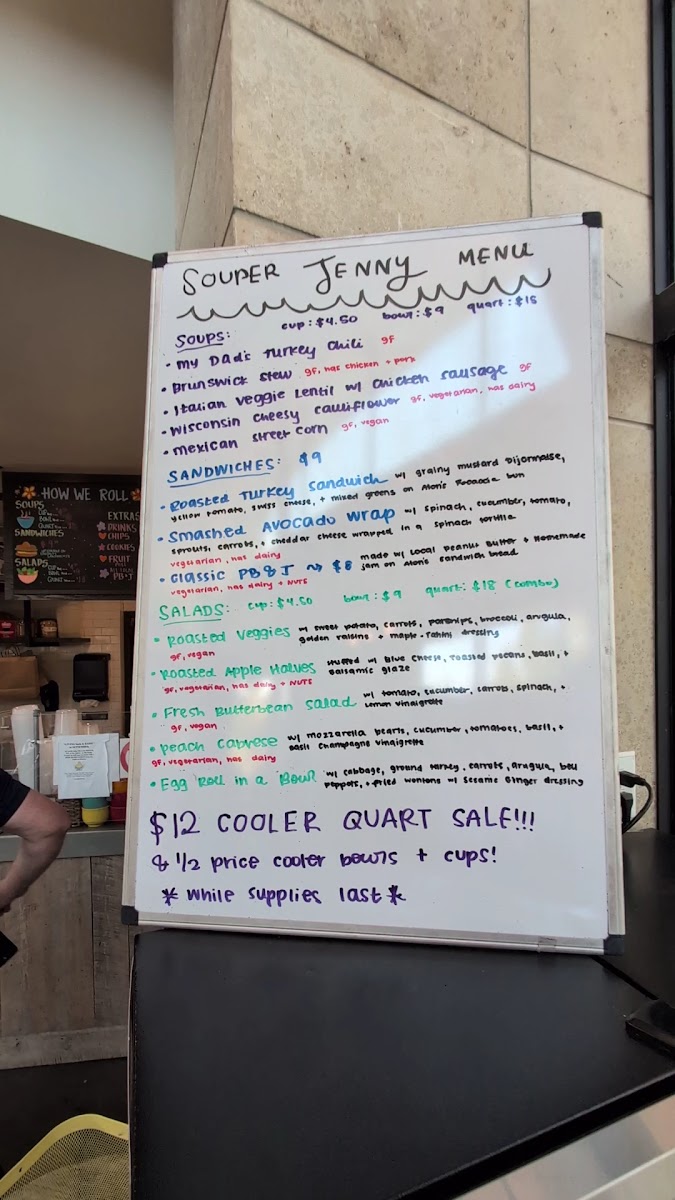 SOUPER JENNY MENU
SOUPS: cup: $4.50 bowl: $9 quart: $18
• My Dad's Turkey Chili GF
• Brunswick Stew GF, has chicken + pork
• Italian Veggie Lentil w/ Chicken Sausage GF
• Wisconsin Cheesy Cauliflower GF, vegetarian, has dairy
• Mexican Street Corn GF, vegan
SANDWICHES: $9
• Roasted Turkey Sandwich w/ grainy mustard Dijonnaise,
yellow tomato, swiss cheese, + mixed greens on Alon's Focaccia bun
• Smashed Avocado Wrap w/ spinach, cucumber, tomato,
sprouts, carrots, + cheddar cheese wrapped in a spinach tortilla
vegetarian, has dairy
• Classic PB&J ~> $8 made w/ local peanut butter + homemade
jam on Alon's sandwich bread
vegetarian, has dairy + NUTS
SALADS: cup: $4.50 bowl: $9 quart: $18 (combo)
• Roasted Veggies w/ sweet potato, carrots, parsnips, broccoli, arugula,
golden raisins + maple-tahini dressing
GF, vegan
• Roasted Apple Halves stuffed w/ blue cheese, toasted pecans, basil, +
balsamic glaze
GF, vegetarian, has dairy + NUTS
• Fresh Butterbean Salad w/ tomato, cucumber, carrots, spinach, +
lemon vinaigrette
GF, vegan
• Peach Caprese w/ mozzarella pearls, cucumber, tomatoes, basil, +
basil champagne vinaigrette
GF, vegetarian, has dairy
• Egg Roll in a Bowl w/ cabbage, ground turkey, carrots, arugula, bell
peppers, + fried wontons w/ sesame ginger dressing
$12 COOLER QUART SALE!!!
& 1/2 price cooler bowls + cups!
* while supplies last *
HOW WE ROLL
SOUPS
SANDWICHES
SALADS
EXTRAS
DRINKS
CHIPS
COOKIES
FRUIT
PB+J